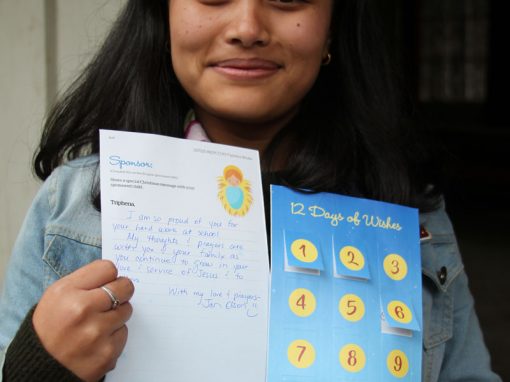 Sponsor:
Share a special Christmas message with your
sponsored child.
Triphena,
I am so proud of you for
your hard work at school.
My thoughts & prayers are
with you & your family as
you continue to grow in your
love & service of Jesus & to
With my love & prayers-
Jan
12 Days of Wishes
1
2
3
4
5
6
7
8
9